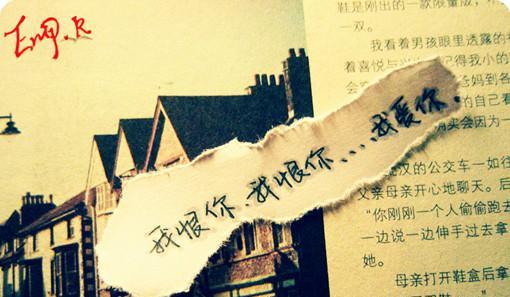 我恨你.我恨你....我爱你.
鞋是刚出的一款限量版，
一双。
我看着男孩眼里透露的
着喜悦与
记得我小的
会
爸妈到各
的自己看
购买会因为一
汉的公交车一如往
父亲母亲开心地聊天。后
“你刚刚一个人偷偷跑去
一边说一边伸手过去拿
她。
母亲打开鞋盒后拿